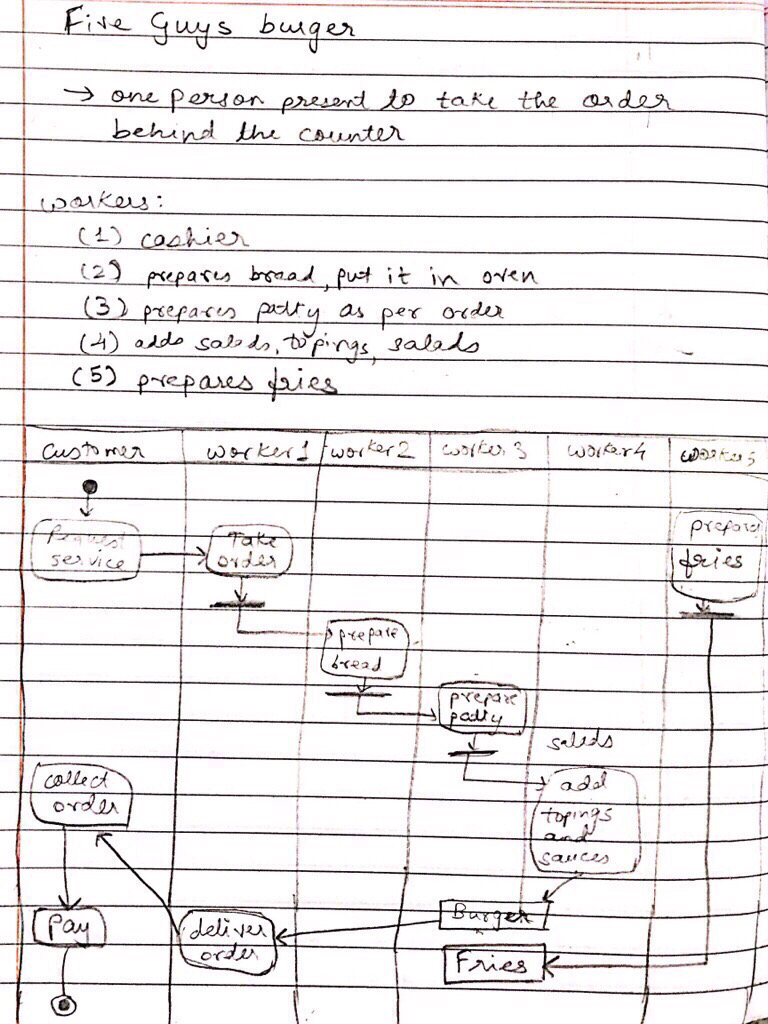 Five Guys burger
→ one person present to take the order
behind the counter
workers:
(1) cashier
(2) prepares bread, put it in oven
(3) prepares patty as per order
(4) adds salads, topings, salads
(5) prepares fries
customer worker1 worker2 worker 3 worker4 worker5
Request
service
Take
order
prepare
fries
prepare
bread
prepare
patty
salads
add
topings
and
sauces
collect
order
Burger
Pay
deliver
order
Fries